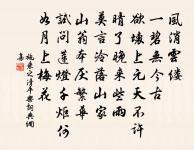 風消雲縷
一碧無今古
欲壞上元天不許
晴了晚來些雨
莫言冷落山家
山翁本厭繁華
試問蓮燈千炬何
如月上梅花
施乘之清平樂詞